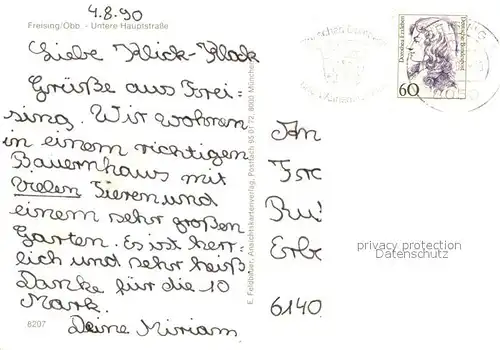 4.8.90
Freising/Obb. - Untere Hauptstraße
Liebe Klick-Klack
Grüße aus Frei-
sing. Wir wohnen
in einem richtigen
Bauernhaus mit
vielen Tieren und
einem sehr großen
Garten. Es ist herr-
lich und sehr heiß.
Danke für die 10
Mark.
Deine Miriam
8207
E. Feldbauer, Ansichtskartenverlag, Postfach 95 01 72, 8000 München
Dorothea Erxleben
Deutsche Bundespost
60
8050
An
Erb
6140
privacy protection
Datenschutz